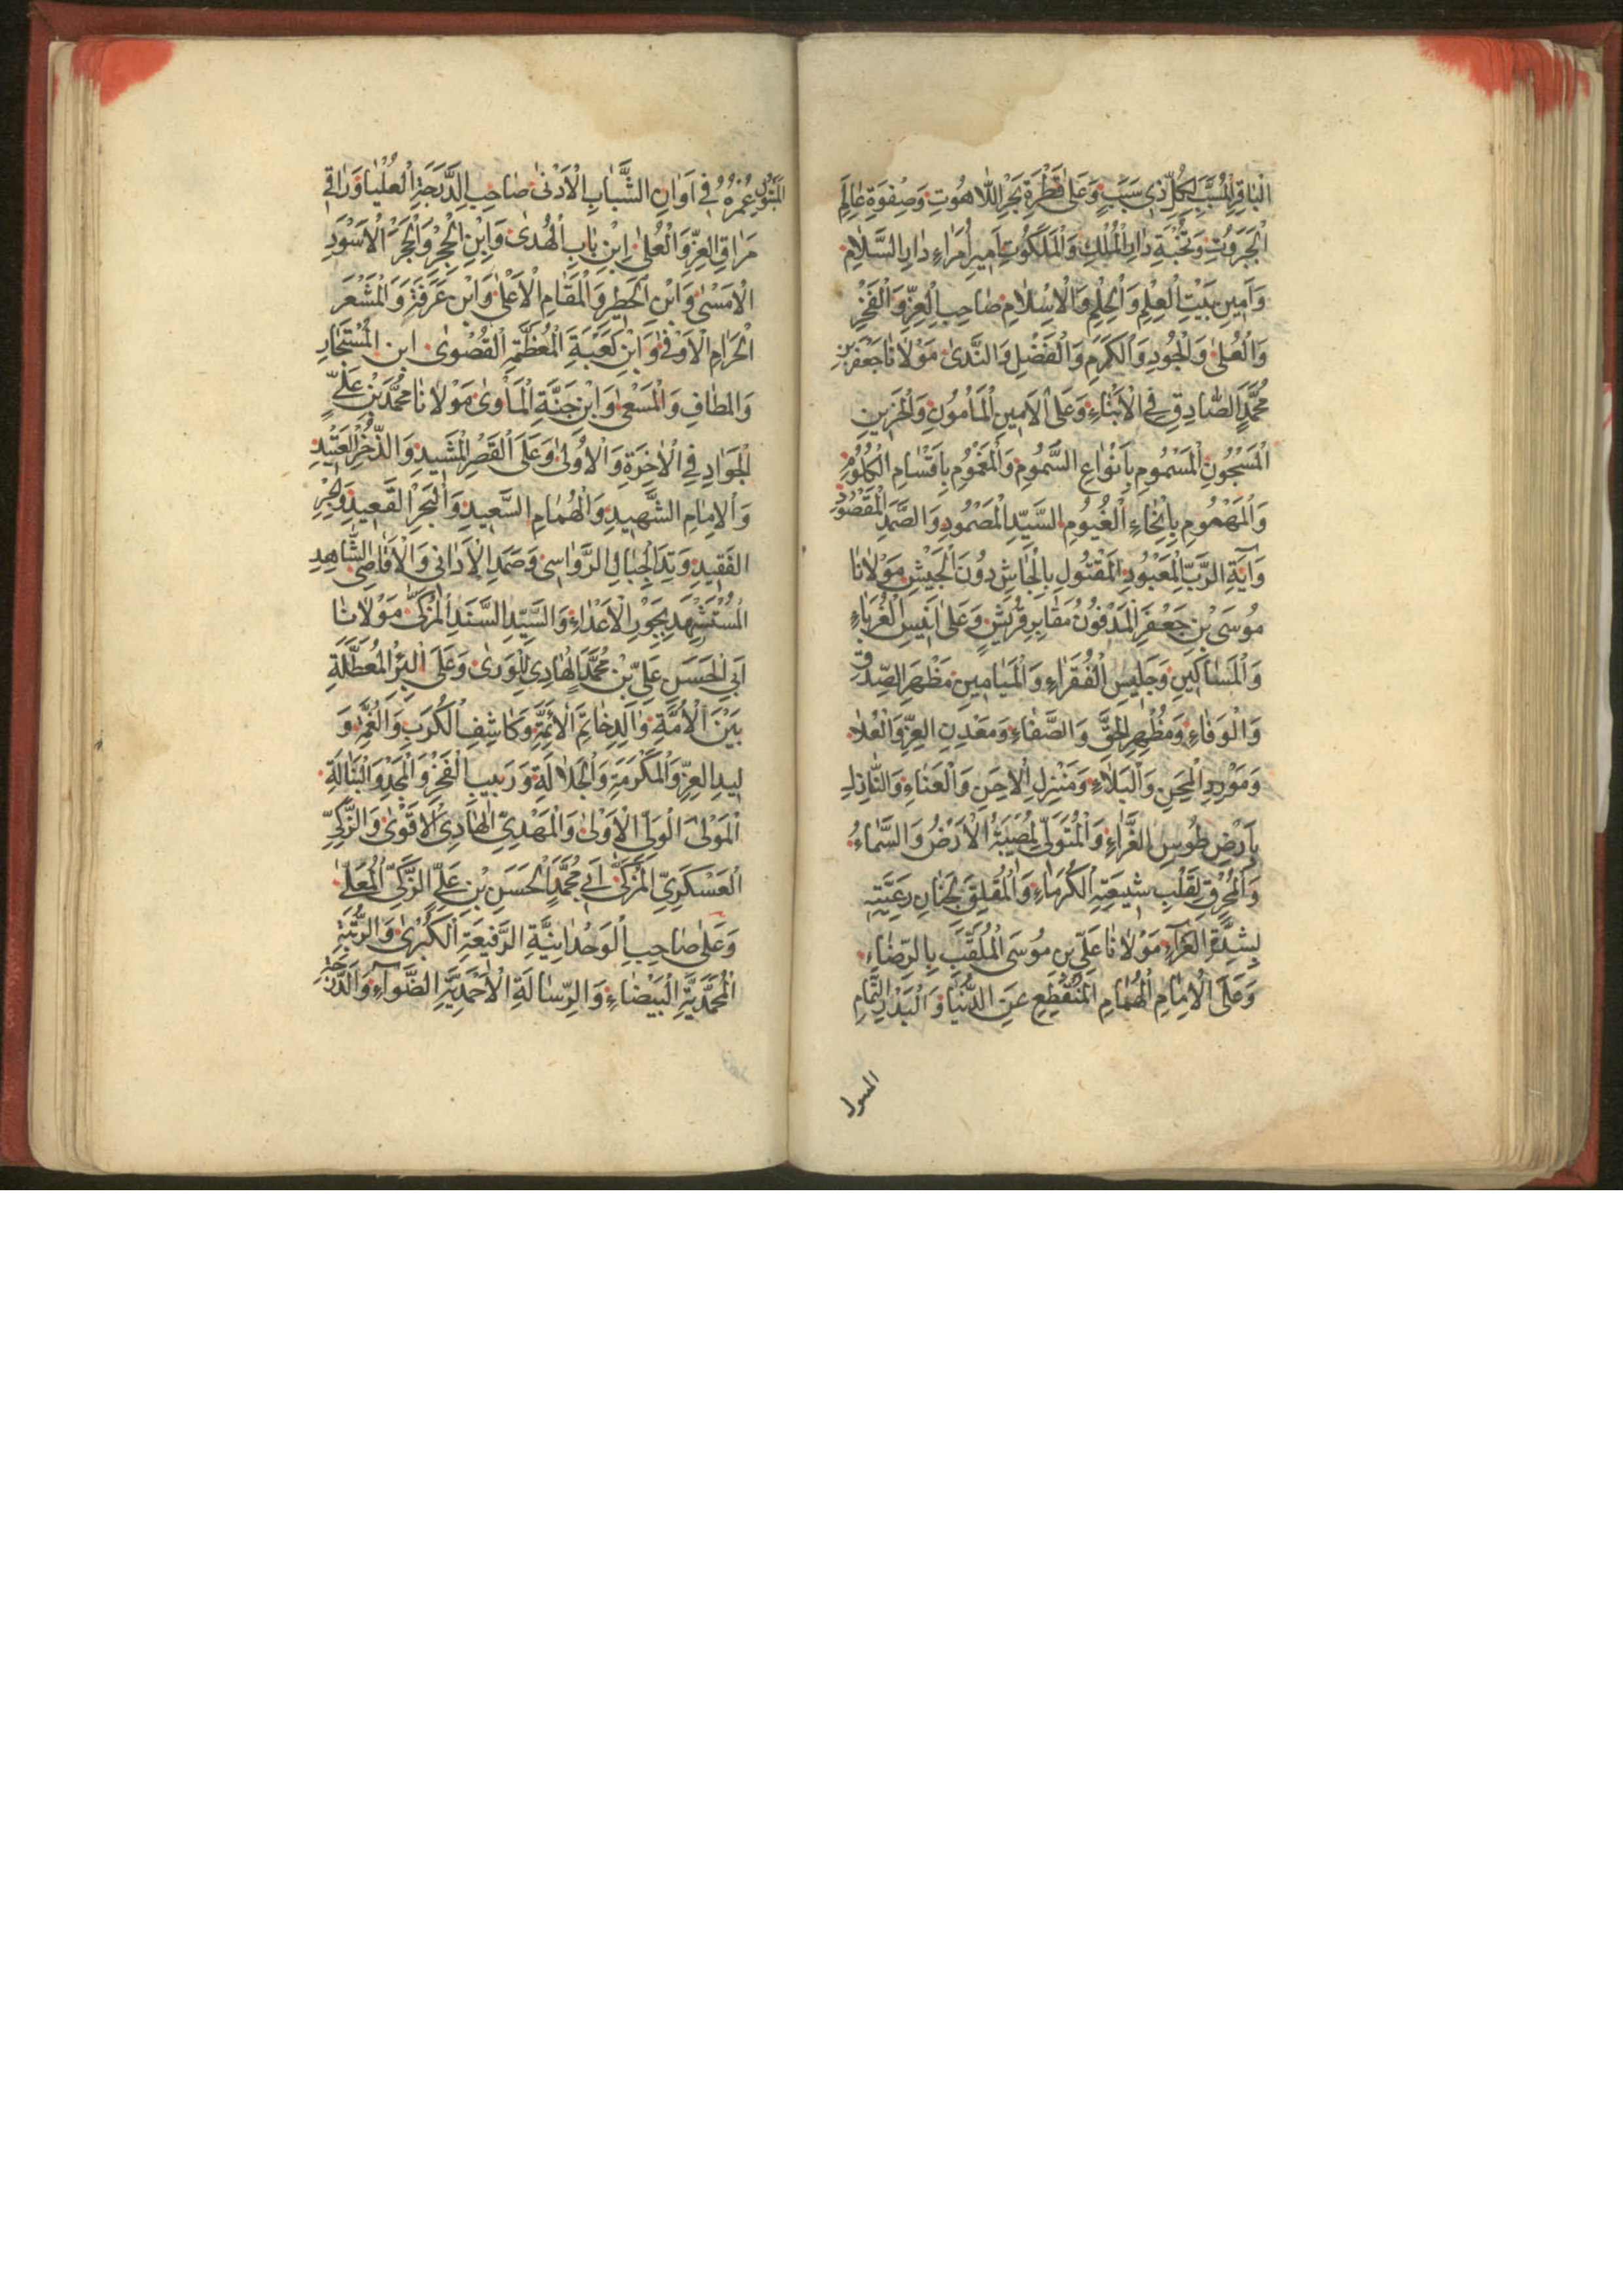 الْبَاقِرِ الْمُسَبَّبِ لِكُلِّ ذِي سَبَبٍ وَعَلىٰ قَطْرَةِ بَحْرِ اللّاهُوتِ وَصِفْوَةِ عٰالَمِ
الْجَبَرُوتِ وَنُخْبَةِ دٰارِ الْمُلْكِ وَالْمَلَكُوتِ اَمِيرِ اُمَرٰاءِ دٰارِ السَّلٰامِ
وَاَمِينِ بَيْتِ الْعِلْمِ وَالْحِلْمِ وَالْاِسْلٰامِ صٰاحِبِ الْعِزِّ وَالْفَخْرِ
وَالْعُلىٰ وَالْجُودِ وَالْكَرَمِ وَالْفَضْلِ وَالنَّدىٰ مَوْلٰانٰا جَعْفَرِ بْنِ
مُحَمَّدٍ الصّٰادِقِ فِي الْاَنْبٰاءِ وَعَلَى الْاَمِينِ الْمَأْمُونِ وَالْحَزِينِ
الْمَسْجُونِ الْمَسْمُومِ بِاَنْوٰاعِ السَّمُومِ وَالْمَغْمُومِ بِاَقْسٰامِ الْكُلُومِ
وَالْمَهْمُومِ بِاَنْحٰاءِ الْغُيُومِ السَّيِّدِ الْمَصْمُودِ وَالصَّمَدِ الْمَقْصُودِ
وَآيَةِ الرَّبِّ الْمَعْبُودِ الْمَقْتُولِ بِالْجٰاشِ دُونَ الْجَيْشِ مَوْلٰانٰا
مُوسَى بْنِ جَعْفَرٍ الْمَدْفُونِ مَقٰابِرِ قُرَيْشٍ وَعَلىٰ اَنِيسِ الْغُرَبٰاءِ
وَالْمَسٰاكِينِ وَجَلِيسِ الْفُقَرٰاءِ وَالْمَيٰامِينِ مَظْهَرِ الصِّدْقِ
وَالْوَفٰاءِ وَمُظْهِرِ الْحَقِّ وَالصَّفٰاءِ وَمَعْدِنِ الْعِزِّ وَالْعُلٰا
وَمَوْرِدِ الْمِحَنِ وَالْبَلٰاءِ وَمَنْزِلِ الْاِحَنِ وَالْعَنٰاءِ وَالنّٰازِلِ
بِاَرْضِ طُوسِ الْغَرّٰاءِ وَالْمُتَوَلّى لِمُصِيبَتِهِ الْاَرْضُ وَالسَّمٰاءُ
وَالْمُحْرِقِ لِقَلْبِ شِيعَتِهِ الْكُرَمٰاءِ وَالْمُقْلِقِ لِجَنٰانِ رَعِيَّتِهِ
بِشِدَّةِ الْعَزٰآءِ مَوْلٰانٰا عَلِيِّ بْنِ مُوسَى الْمُلَقَّبِ بِالرِّضٰاءِ
وَعَلَى الْاِمٰامِ الْهُمٰامِ الْمُنْقَطِعِ عَنِ الدُّنْيٰا وَالْبَدْرِ التَّمٰامِ
عُمْرُهُ فِي اَوٰانِ الشَّبٰابِ الْاَدْنىٰ صٰاحِبِ الدَّرَجَةِ الْعُلْيٰا وَرٰاقِي
مَرٰاقِي الْعِزِّ وَالْعُلىٰ اِبْنِ بٰابِ الْهُدىٰ وَابْنِ الْحِجْرِ وَالْحَجَرِ الْاَسْوَدِ
الْاَمَسْنىٰ وَابْنِ الْحَطِيرِ وَالْمَقٰامِ الْاَعْلىٰ وَابْنِ عَرَفَةَ وَالْمَشْعَرِ
الْحَرٰامِ الْاَوْفىٰ وَابْنِ كَعْبَةِ الْمُعَظَّمَةِ الْقُصْوىٰ ابن الْمُسْتَجٰارِ
وَالْمَطٰافِ وَالْمَسْعىٰ وَابْنِ جَنَّةِ الْمَأْوىٰ مَوْلٰانٰا مُحَمَّدِ بْنِ عَلِيٍّ
الْجَوٰادِ فِي الْآخِرَةِ وَالْاُولىٰ وَعَلَى الْقَصْرِ الْمَشِيدِ وَالذُّخْرِ الْعَتِيدِ
وَالْاِمٰامِ الشَّهِيدِ وَالْهُمٰامِ السَّعِيدِ وَالْبَحْرِ الْقَعِيدِ وَالْحِبْرِ
الْفَقِيدِ وَتِدِ الْجِبٰالِ الرَّوٰاسِي وَصَمَدِ الْاَدٰانِي وَالْاَقٰاصِي الشّٰاهِدِ
الْمُسْتَشْهَدِ بِجَوْرِ الْاَعْدٰاءِ وَالسَّيِّدِ السَّنَدِ الْمُزَكّىٰ مَوْلٰانٰا
اَبِي الْحَسَنِ عَلِيِّ بْنِ مُحَمَّدٍ الْهٰادِي لِلْوَرىٰ وَعَلَى الْبِئْرِ الْمُعَطَّلَةِ
بَيْنَ الْاُمَّةِ وٰالِدِ خٰاتَمِ الْاَئِمَّةِ وَكٰاشِفِ الْكُرَبِ وَالْغُمَّةِ وَ
لِيدِ الْعِزِّ وَالْمَكْرَمَةِ وَالْجَلٰالَةِ وَرَبِيبِ الْفَخْرِ وَالْمَجْدِ وَالنَّبٰالَةِ
الْمَوْلَى الْوَلِيِّ الْاَوْلىٰ وَالْمَهْدِيِّ الْهٰادِي الْاَقْوىٰ وَالزَّكِيِّ
الْعَسْكَرِيِّ الْمُزَكّىٰ اَبِي مُحَمَّدٍ الْحَسَنِ بْنِ عَلِيٍّ الزَّكِيِّ الْمُعَلّىٰ
وَعَلىٰ صٰاحِبِ الْوَحْدٰانِيَّةِ الرَّفِيعَةِ الْكُبْرىٰ وَالرُّتْبَةِ
الْمُحَمَّدِيَّةِ الْبَيْضٰاءِ وَالرِّسٰالَةِ الْاَحْمَدِيَّةِ الضَّوْآءِ وَالدَّرَجَةِ